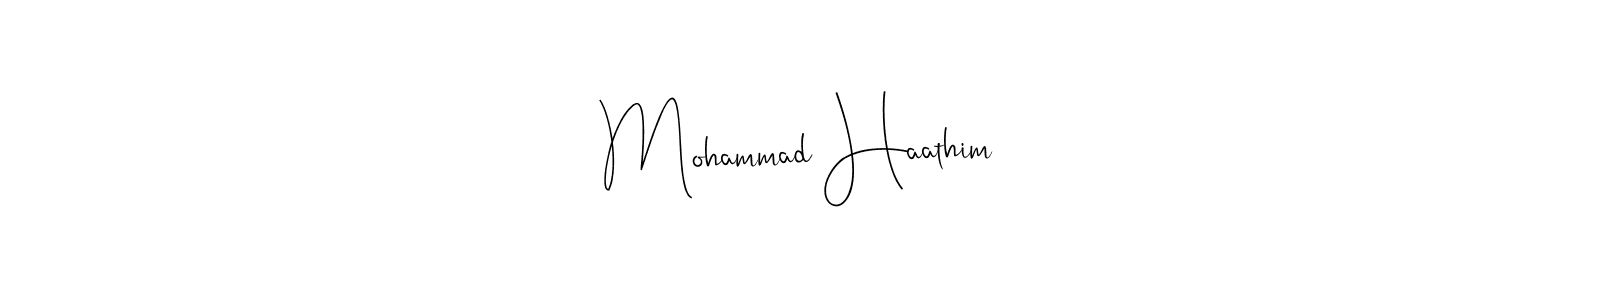 Mohammad Haathim